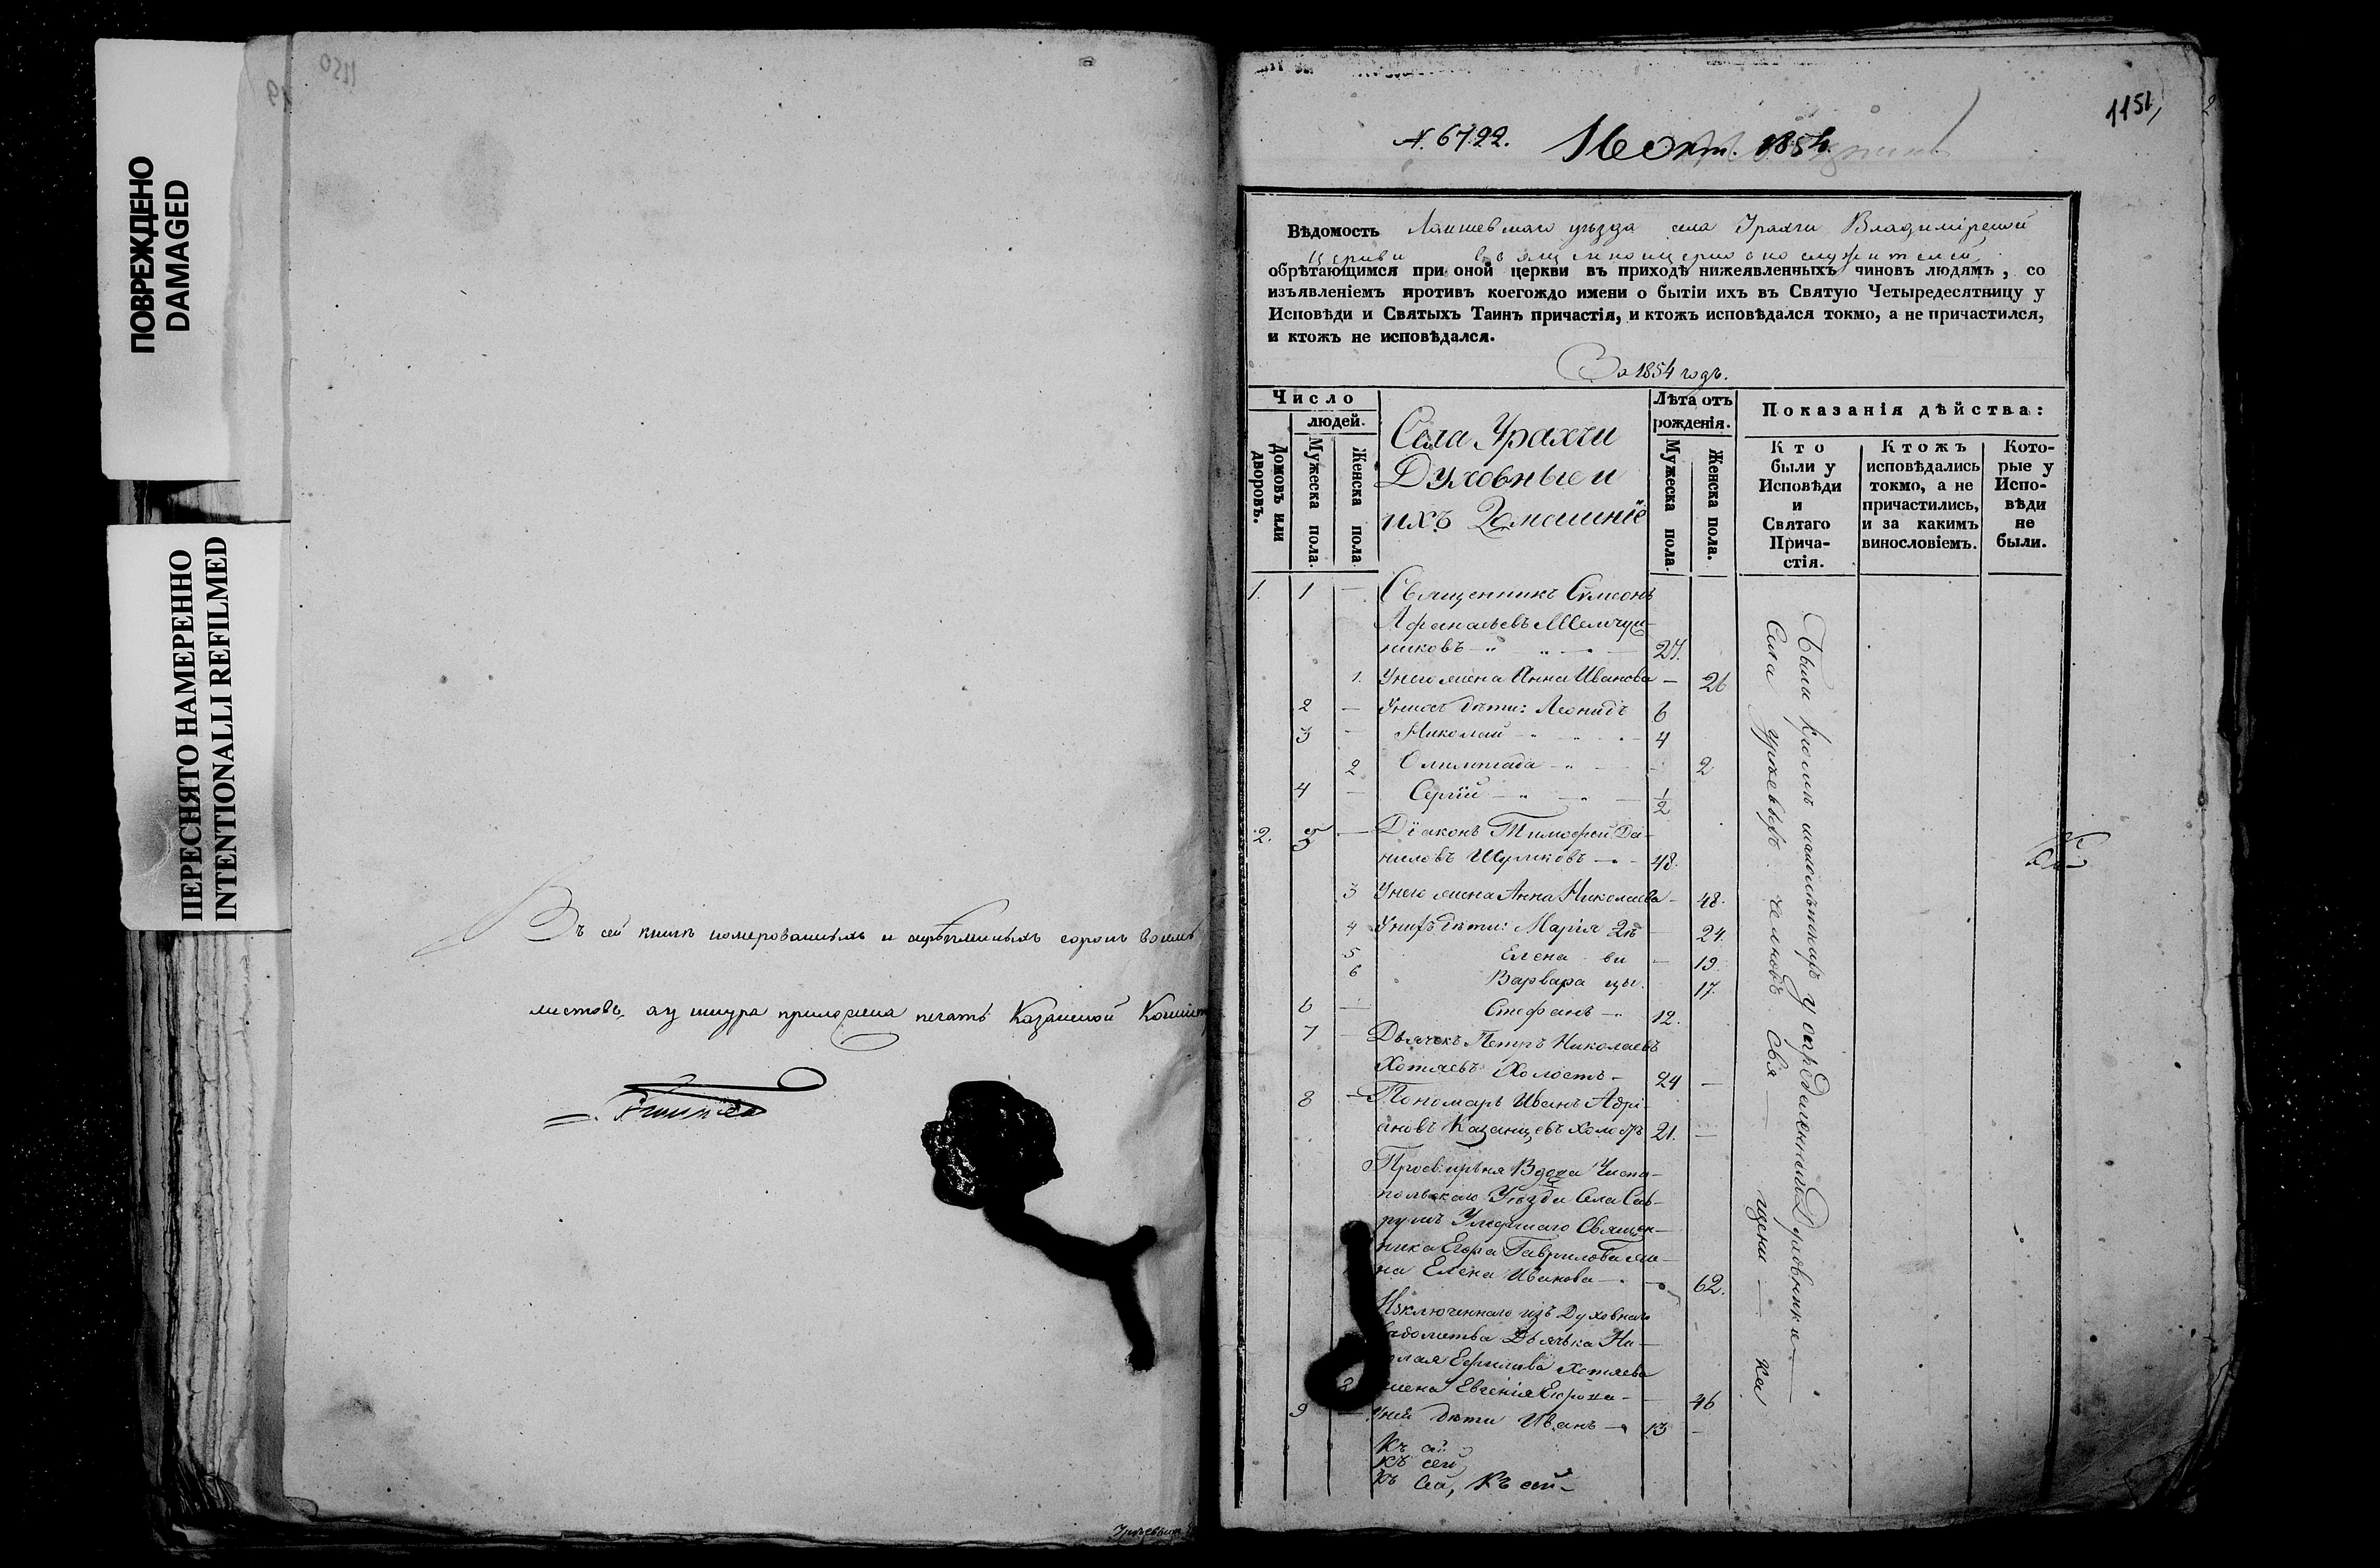 1150
ПОВРЕЖДЕНО
DAMAGED
ПЕРЕСНЯТО НАМЕРЕННО
INTENTIONALLI REFILMED
Въ сей книгѣ номерованныхъ и скрѣпленныхъ сорокъ восемь
листовъ, а у шнура приложена печать Казанской
1151
N. 6722. 16 Окт. 1854
Вѣдомость Лаишевскаго уѣзда села Урахчи Владимірской
церкви
обрѣтающимся при оной церкви въ приходѣ нижеявленныхъ чиновъ людямъ, со
изъявленіемъ противъ коегождо имени о бытіи ихъ въ Святую Четыредесятницу у
Исповѣди и Святыхъ Таинъ причастія, и ктожъ исповѣдался токмо, а не причастился,
и ктожъ не исповѣдался.
За 1854 годъ.
Число
людей.
Домовъ или дворовъ.
Мужеска пола.
Женска пола
Села Урахчи
Духовные и
ихъ Домашніе
Лѣта отъ
рожденія.
Мужеска пола.
Женска пола.
Показанія дѣйства:
Кто
были у
Исповѣди
и
Святаго
Прича-
стія.
Ктожъ
исповѣдались
токмо, а не
причастились,
и за какимъ
винословіемъ.
Кото-
рые у
Испо-
вѣди
не
были.
1. 1 — Священникъ Симеонъ
Афанасьевъ
никовъ 27.
1. У него жена Анна Иванова — 26
2 — У нихъ дѣти: Леонидъ 6
3 — Николай 4
2 Олимпіада — 2
4 — Сергій — 1/2
2. 5 — Діаконъ Тимофей Да-
ниловъ Шумковъ — 48.
3 У него жена Анна Николаева — 48.
4 У нихъ дѣти: Марія дѣ — 24.
5 Елена ви — 19
6 Варвара цы. 17.
6 — Стефанъ — 12.
7 — Дьячекъ Петръ Николаевъ
Хотяевъ Холостъ — 24 —
8 — Пономарь Иванъ Адрі-
ановъ Казанцевъ холостъ 21. —
Просвирня Вдова Чисто-
польскаго Уѣзда Села Сав-
рушъ Умершаго Священ-
ника Егора Гаврилова же-
на Елена Иванова — 62.
Изключеннаго изъ Духовнаго
вѣдомства Дьячька Ни-
колая Ефимова Хотяева
8 жена Евгенія — 46
9 — У ней дѣти Иванъ — 13 —
Къ сей
Къ сей
Къ сей, Къ сей —
Были у определеннаго Духовника
Села свя — щени — ка